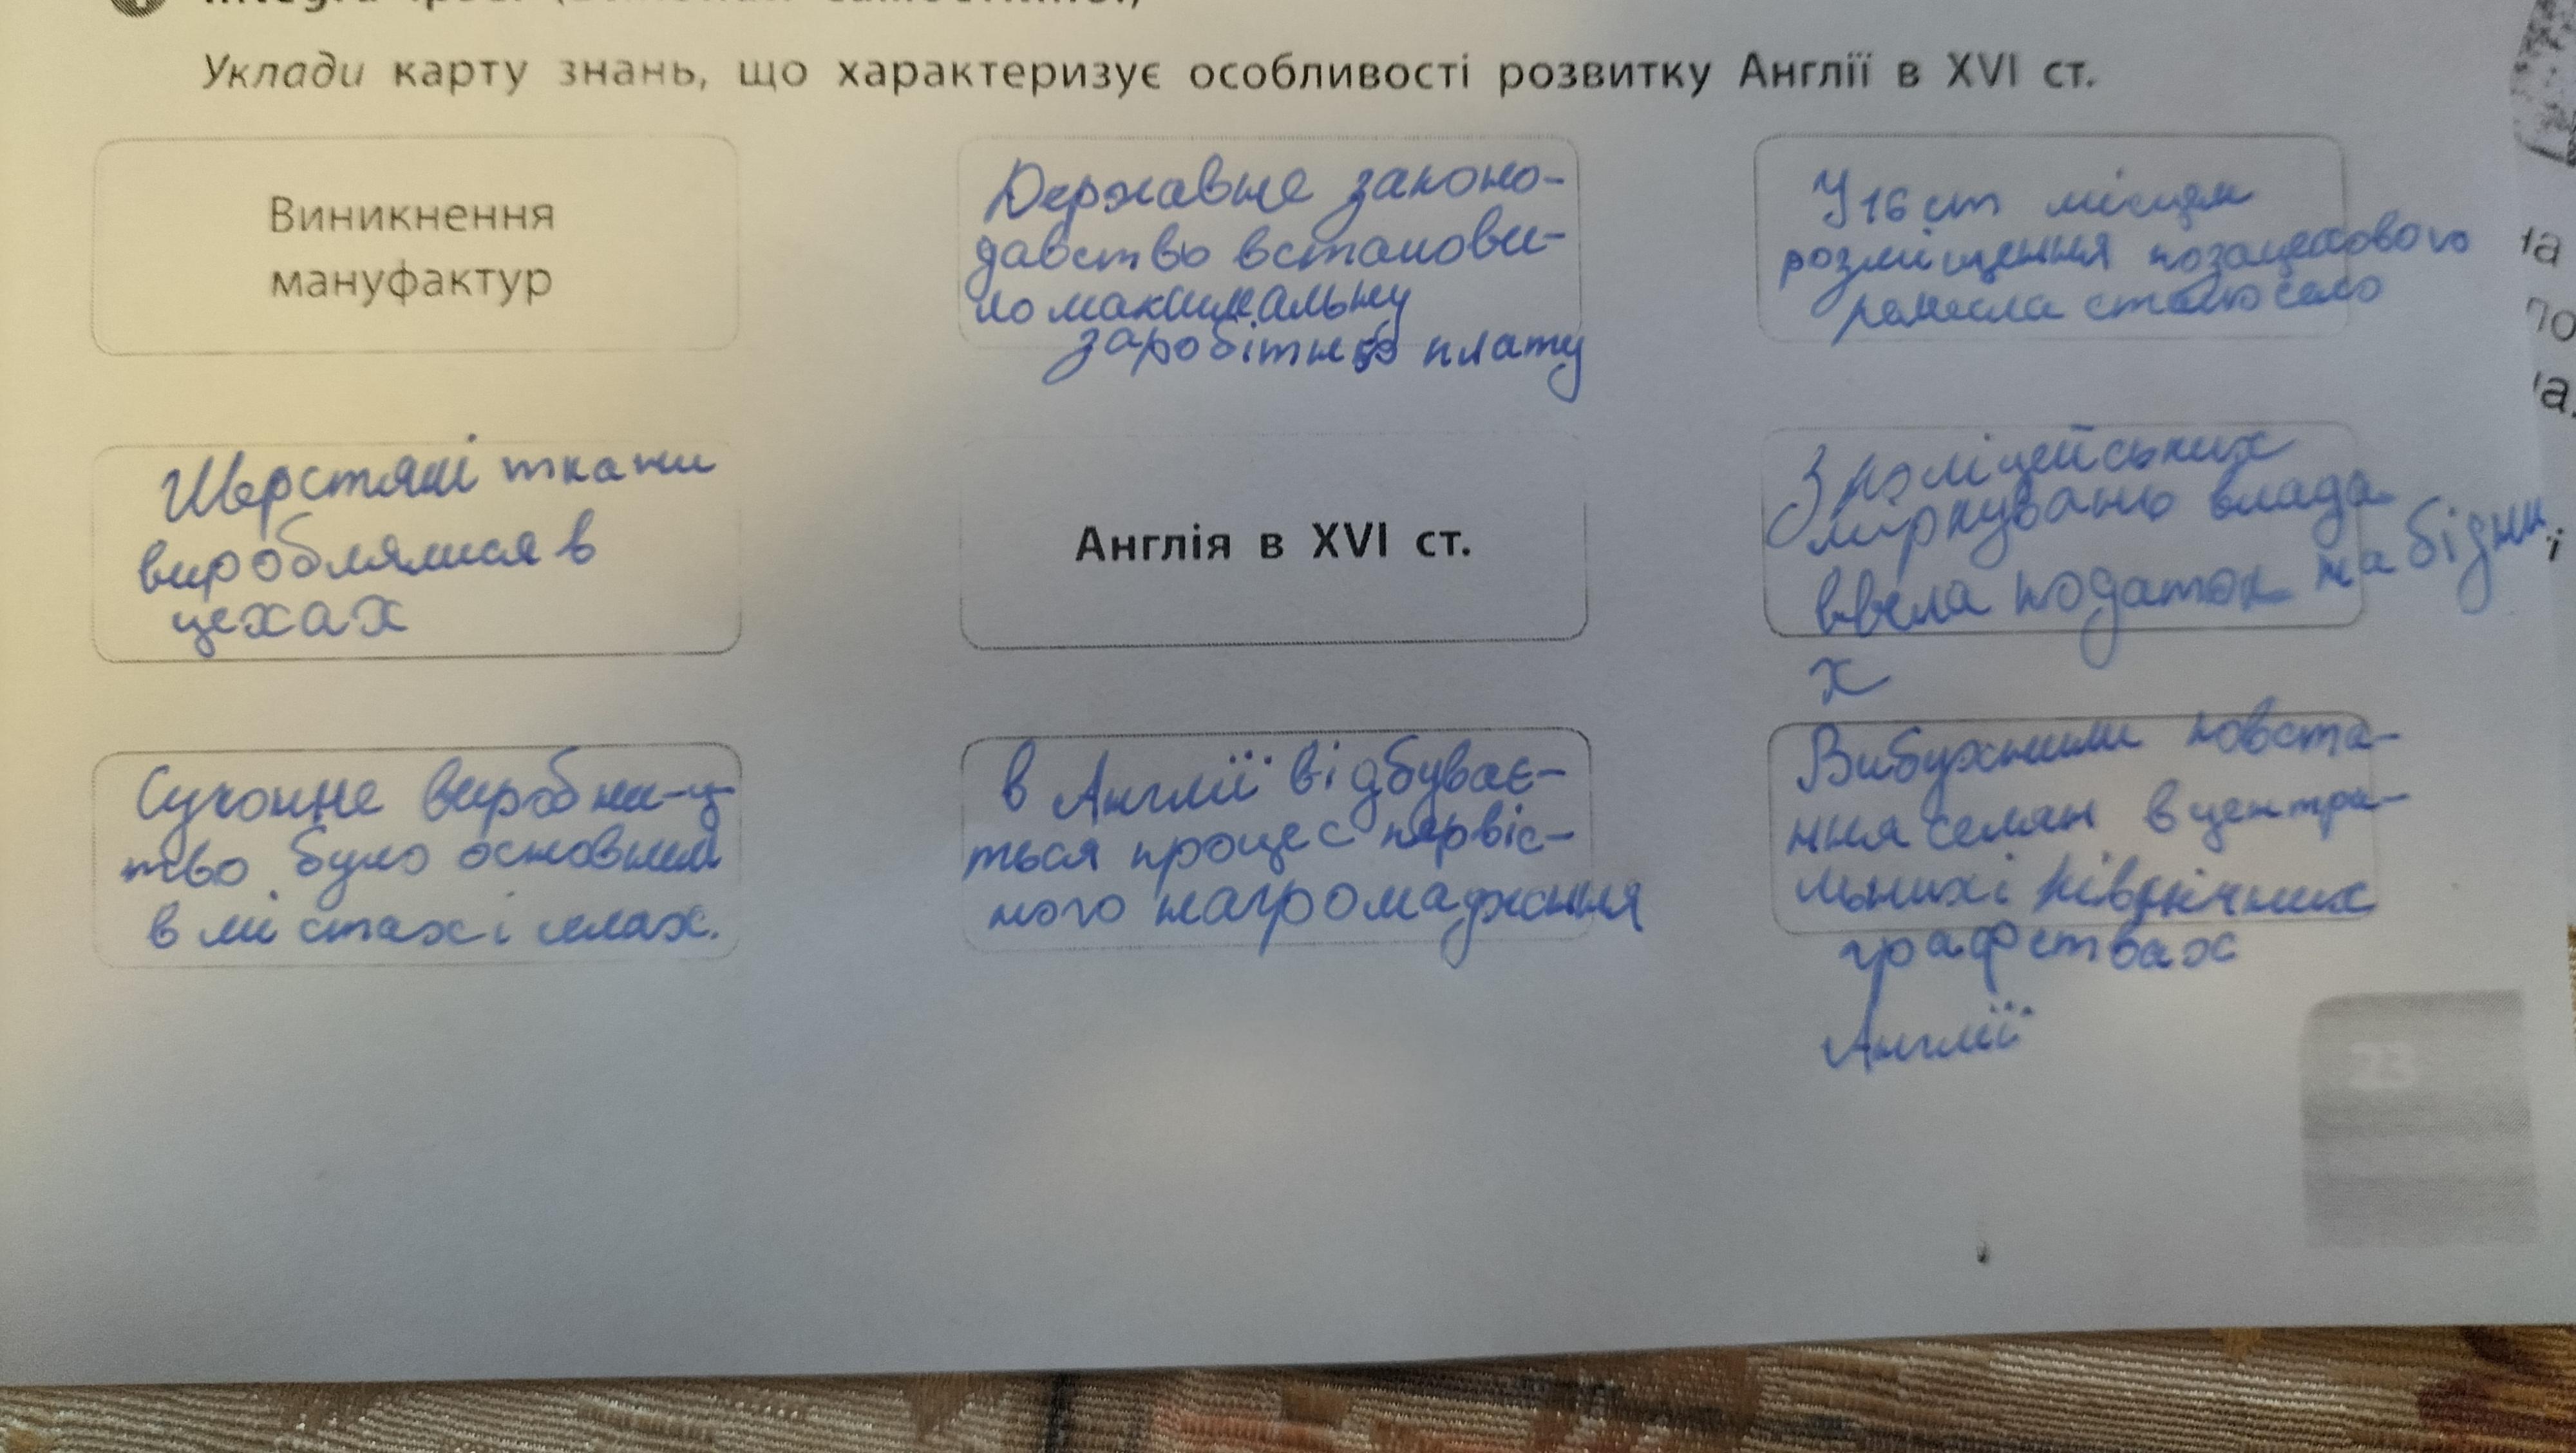 Уклади карту знань, що характеризує особливості розвитку Англії в XVI ст.
Виникнення
мануфактур
Державне законо-
давство встанови-
ло максимальну
заробітню плату
У 16 ст місцем
розміщення позацехового
ремесла стало село
Шерстяні ткани
вироблялися в
цехах
Англія в XVI ст.
З поліцейських
міркувань влада
ввела податок на бідни
х
Суконне виробни-ц
тво було основним
в містах і селах.
в Англії відбуває-
ться процес первіс-
ного нагромадження
Вибухнили повста-
ння селян в центра-
льних і північних
графствах
Англії
23